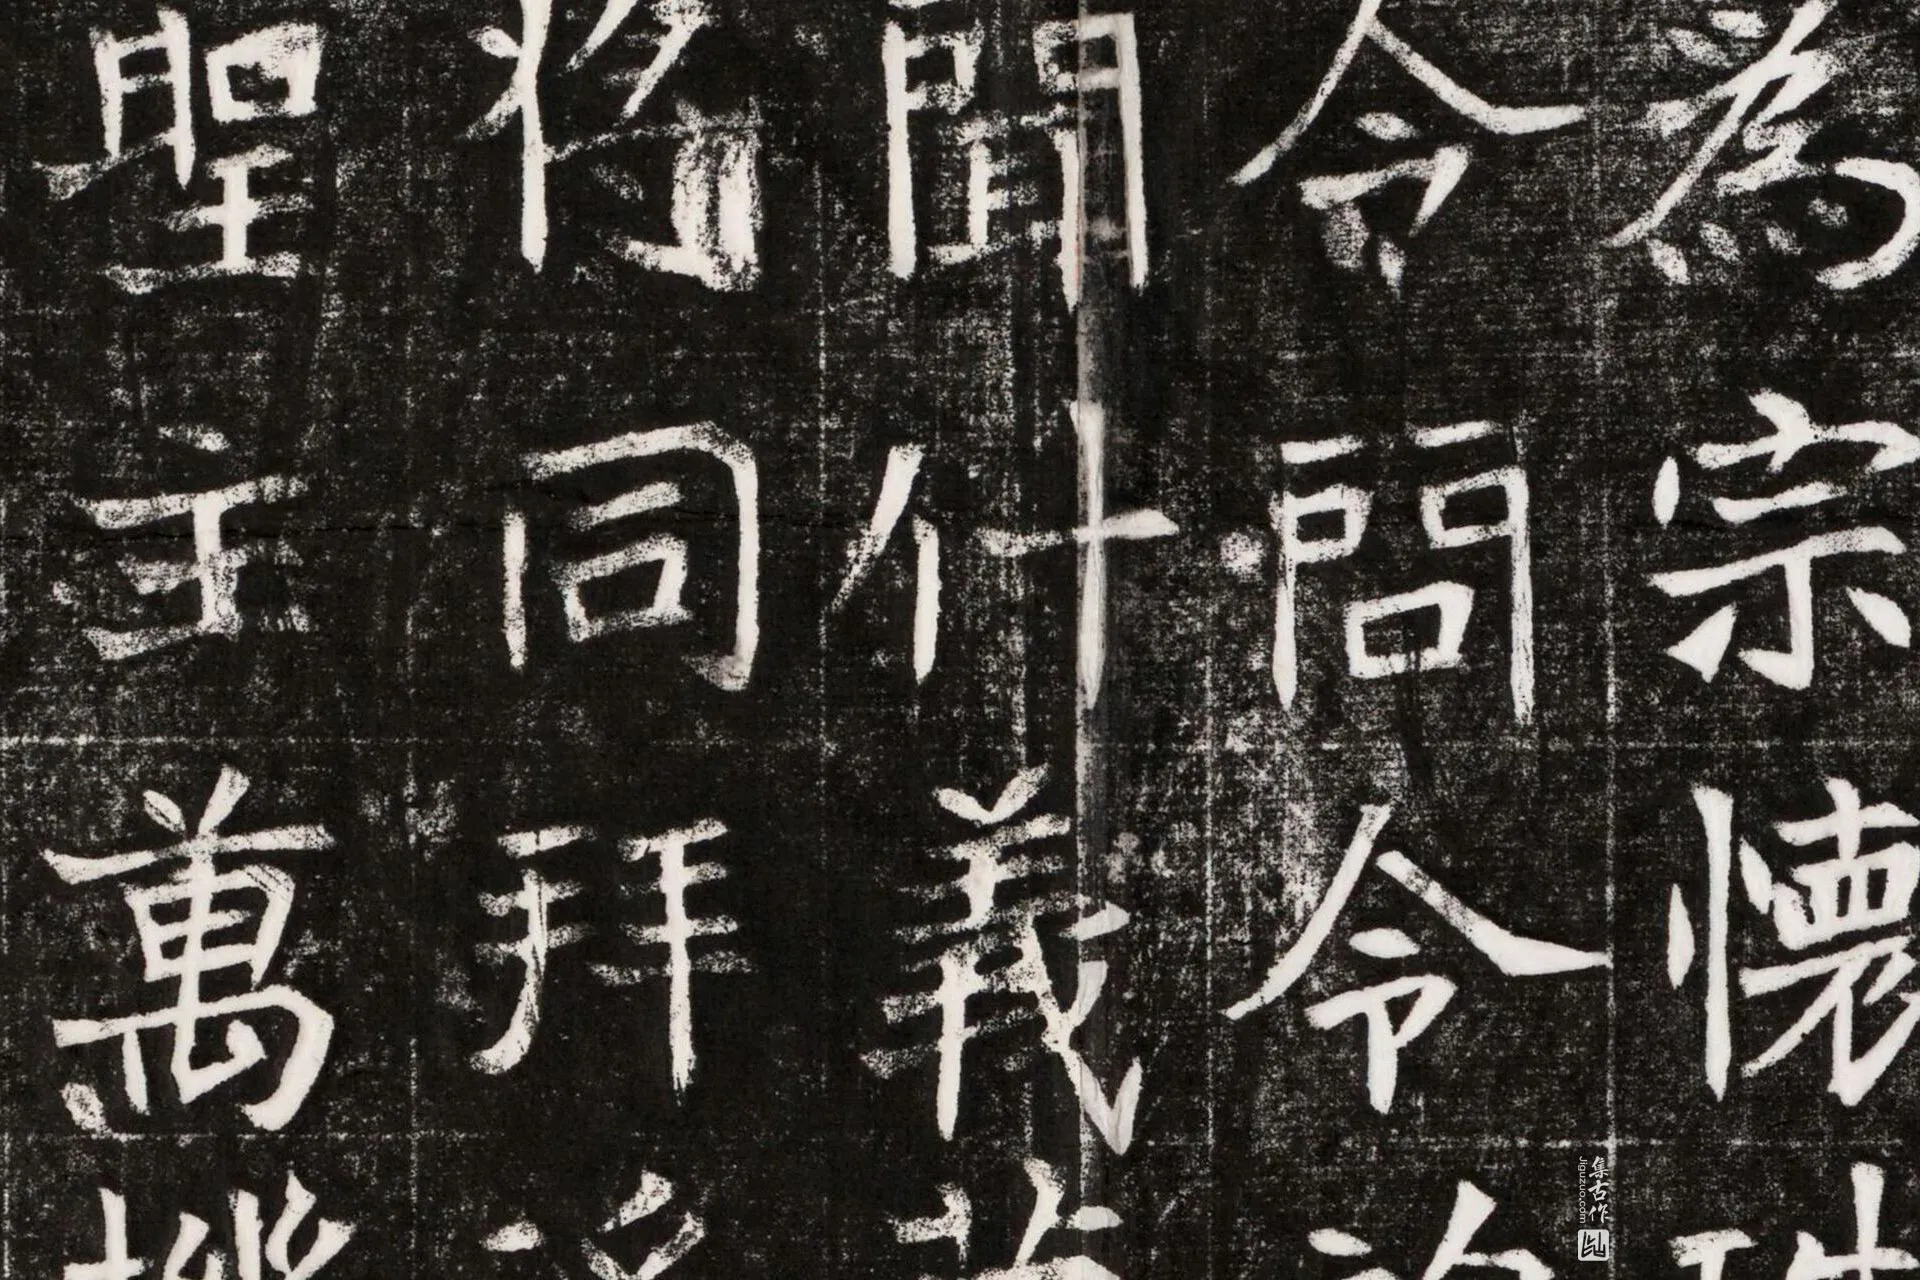 為宗懷珠
令問令
聞什義
將同拜
聖主萬機
集古作
jiguzuo.com